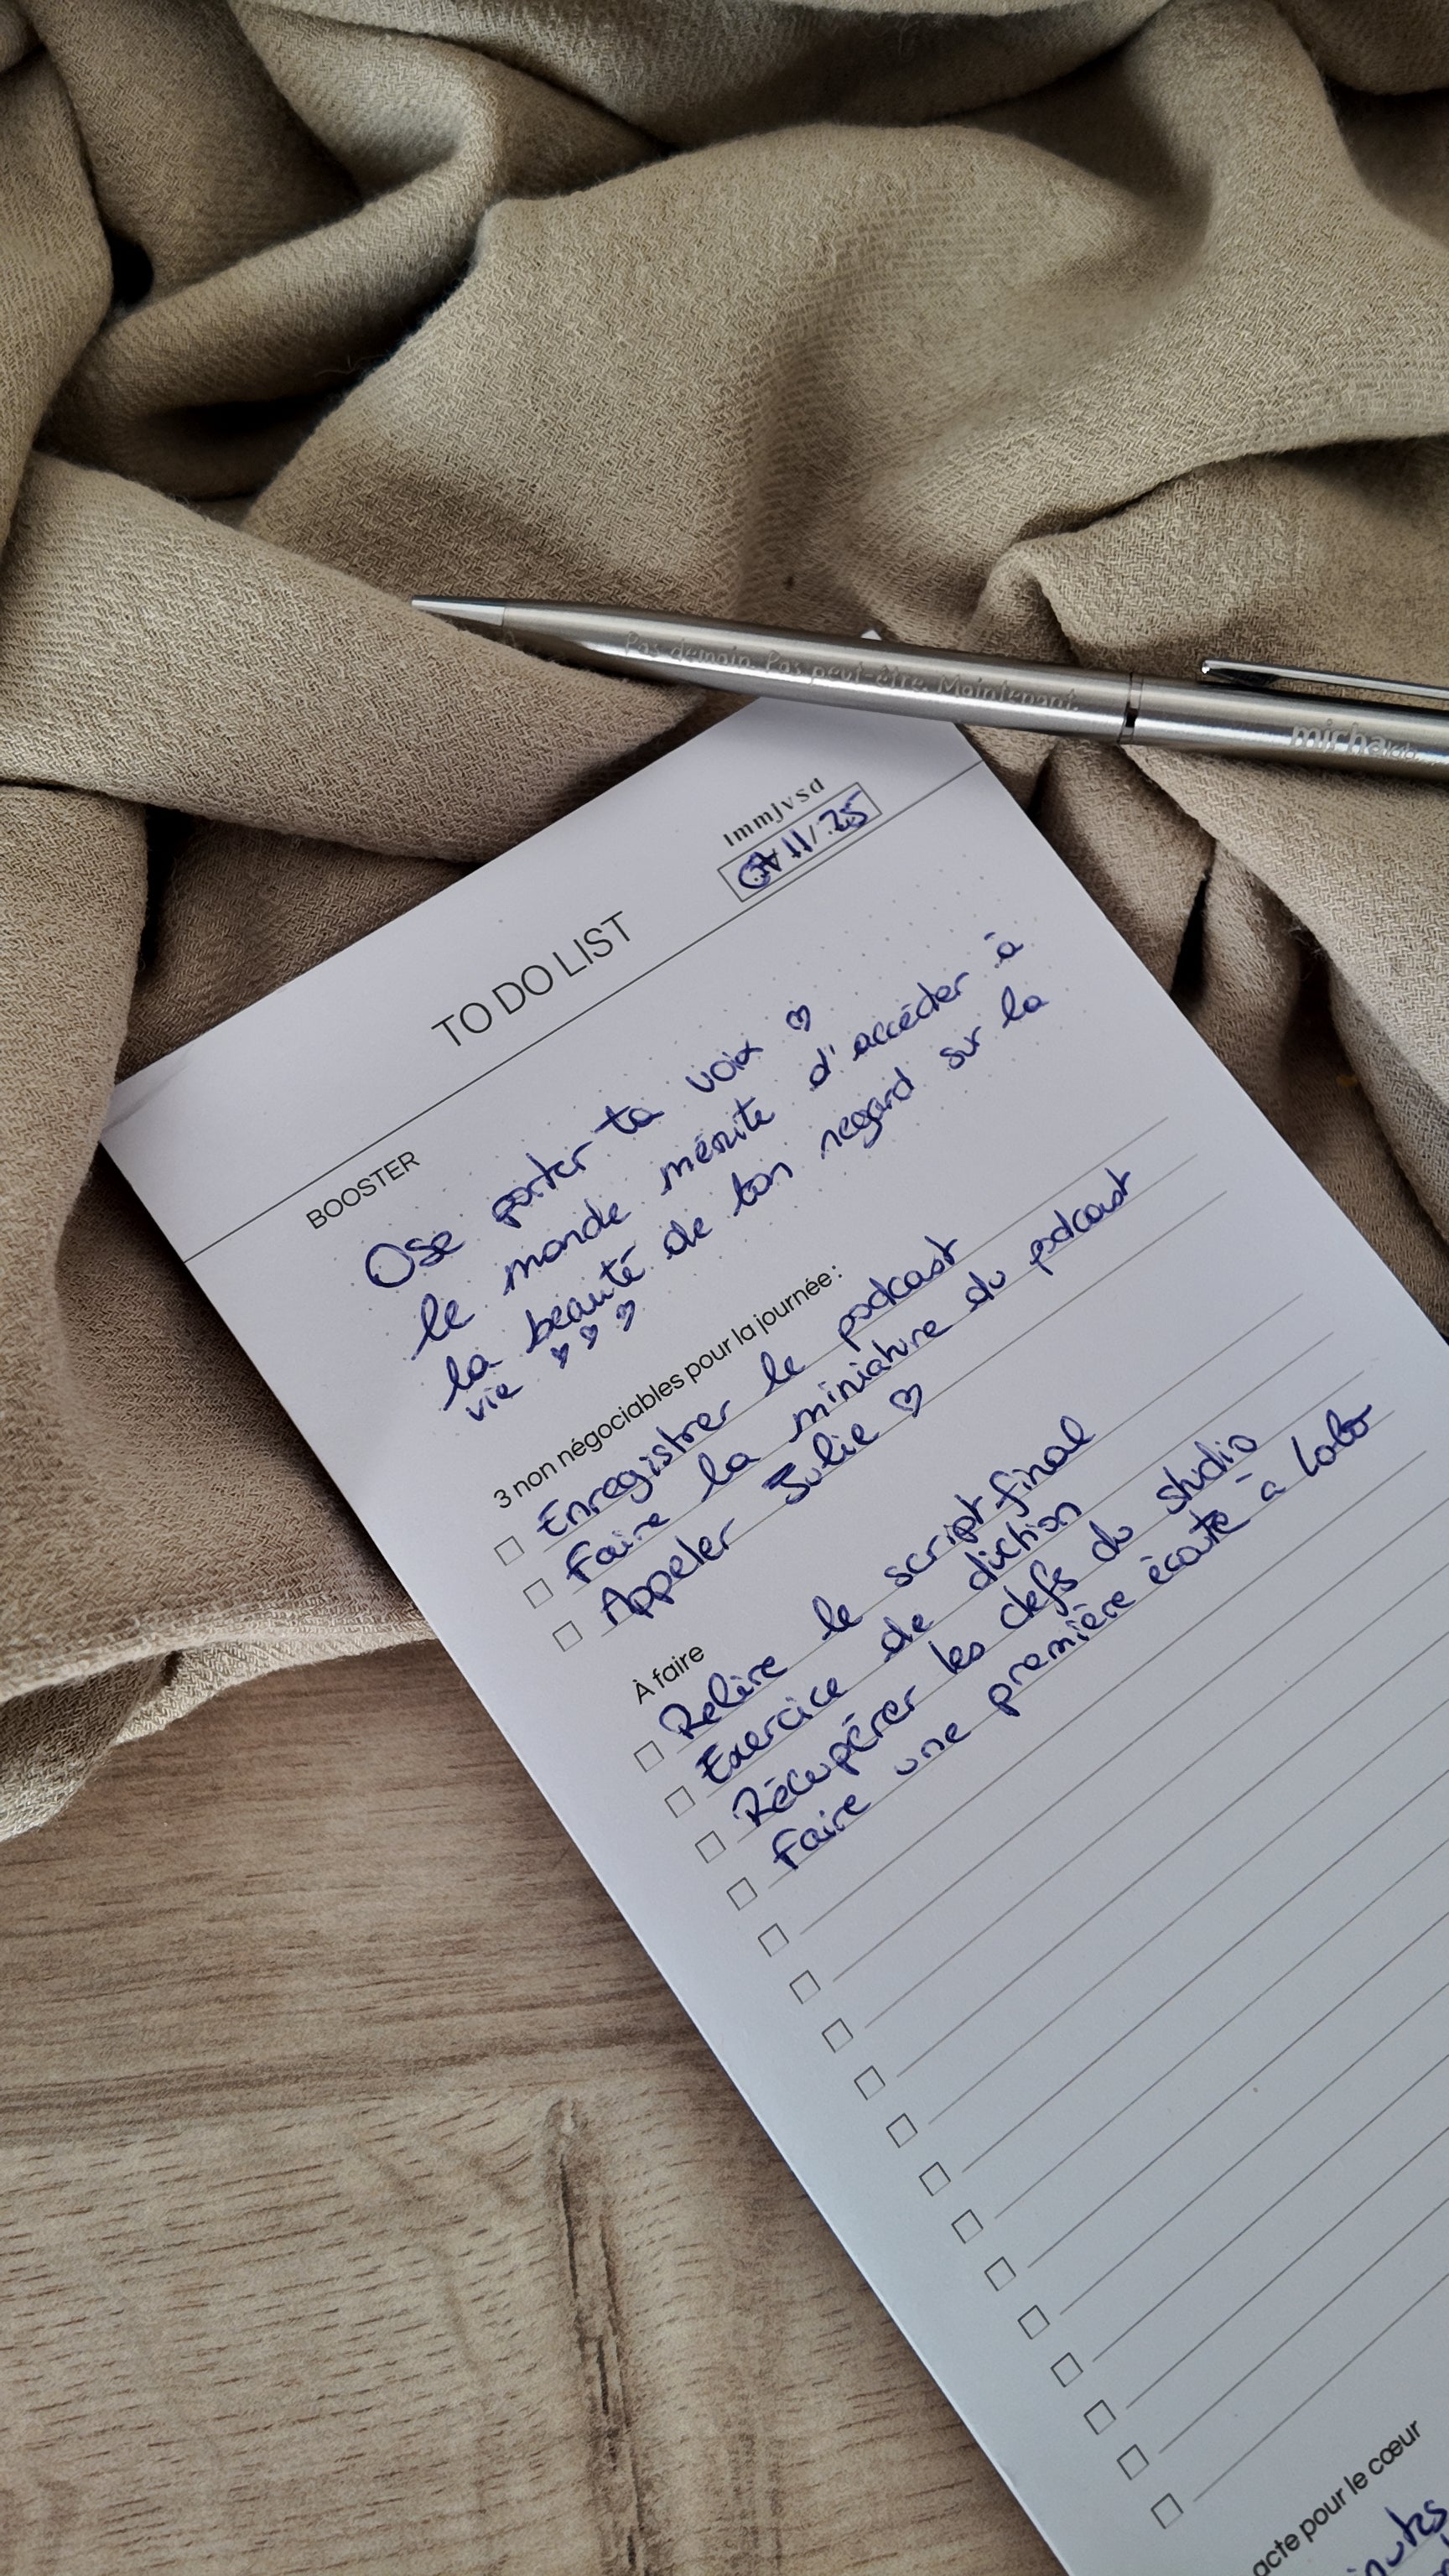 Pas demain. Pas peut-être. Maintenant.
TO DO LIST
lmmjvsd
/11/25
BOOSTER
Ose porter ta voix ♡
le monde mérite d'accéder à
la beauté de ton regard sur la
vie ♡ ♡ ♡
3 non négociables pour la journée :
Enregistrer le podcast
Faire la miniature du podcast
Appeler Julie ♡
À faire
Relire le script final
Exercice de diction
Récupérer les clefs du studio
Faire une première écoute à Lolo
acte pour le cœur